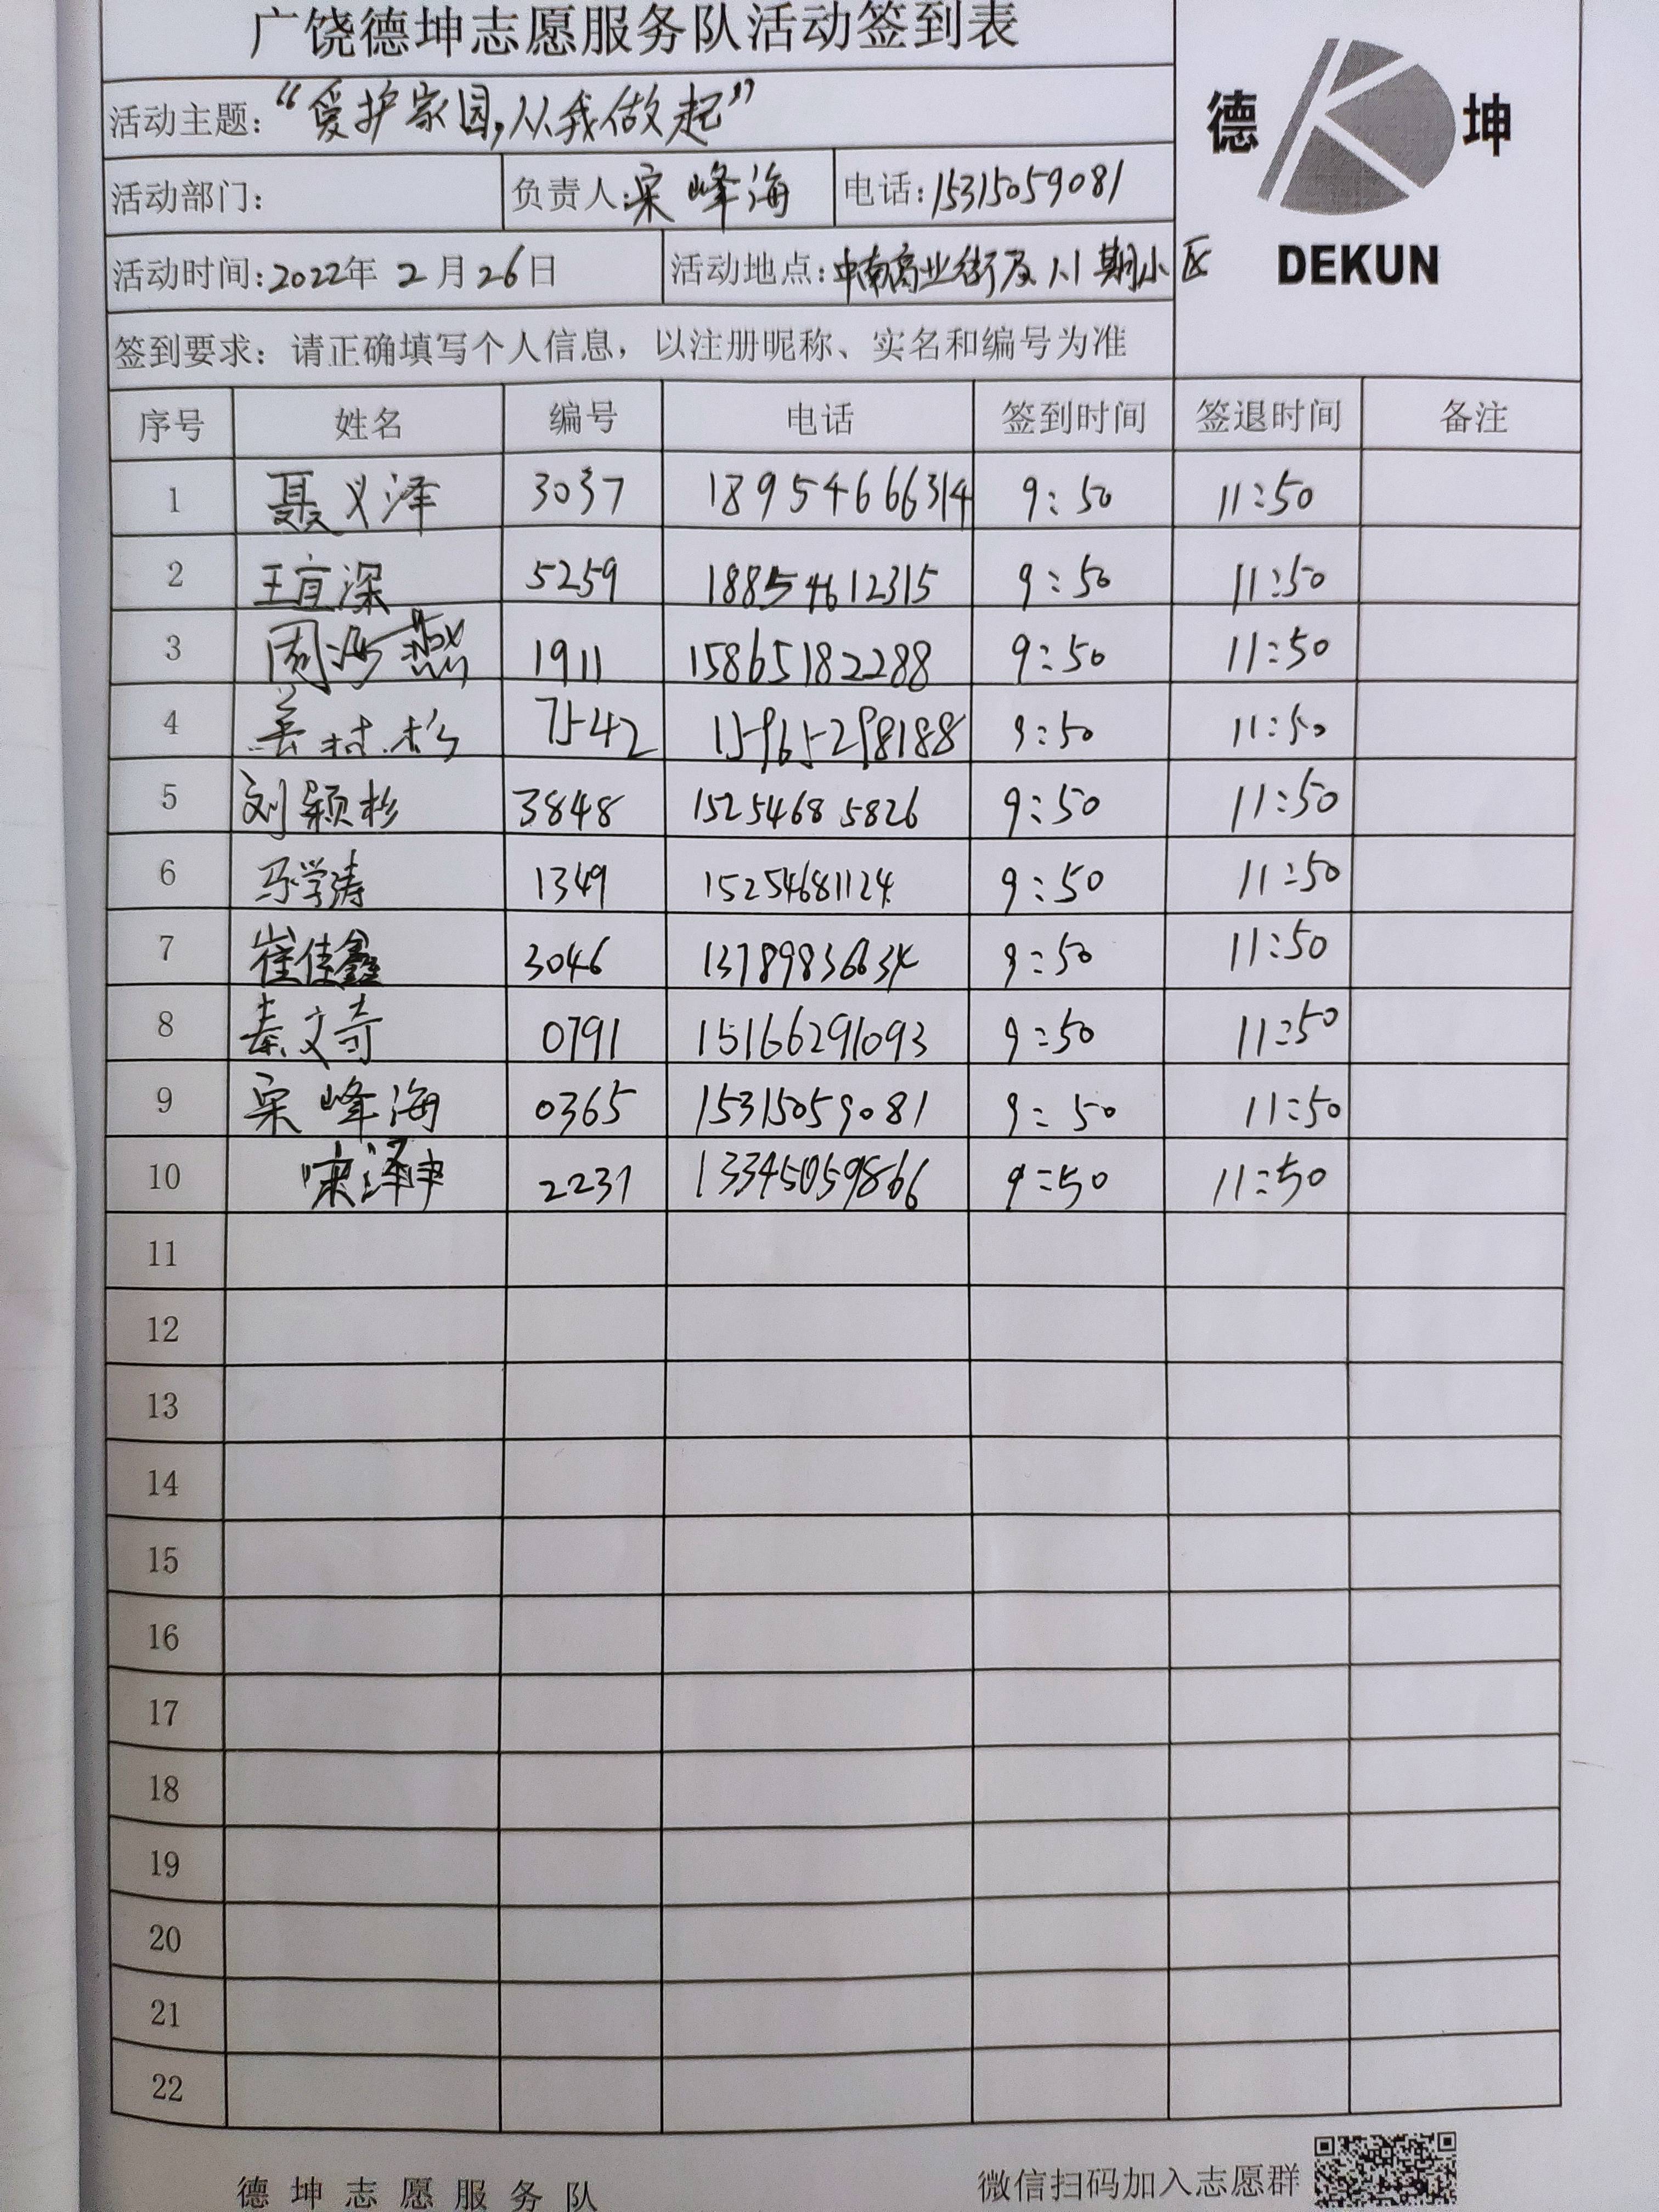 广饶德坤志愿服务队活动签到表
德 坤
DEKUN
活动主题：“爱护家园,从我做起”
活动部门： 负责人：宋峰海 电话：15315059081
活动时间：2022年2月26日 活动地点：中南商业街及 期小区
签到要求：请正确填写个人信息，以注册昵称、实名和编号为准
序号 姓名 编号 电话 签到时间 签退时间 备注
1 聂义泽 3037 18954666314 9:50 11:50
2 王宜深 5259 18854612315 9:50 11:50
3 周海燕 1911 15865182288 9:50 11:50
4 7542 15965298188 9:50 11:50
5 刘颖杉 3848 15254685826 9:50 11:50
6 马学涛 1349 15254681124 9:50 11:50
7 崔佳鑫 3046 13789836634 9:50 11:50
8 秦文奇 0791 15166291093 9:50 11:50
9 宋峰海 0365 15315059081 9:50 11:50
10 2231 13345059866 9:50 11:50
11
12
13
14
15
16
17
18
19
20
21
22
德坤志愿服务队 微信扫码加入志愿群